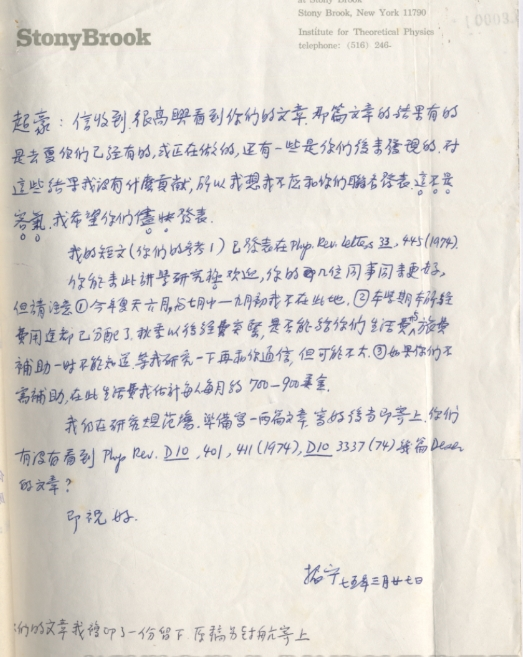 at Stony Brook
Stony Brook, New York 11790
StonyBrook
Institute for Theoretical Physics
telephone: (516) 246-
超豪：信收到，很高興看到你们的文章。那篇文章的结果有的
是去夏你们已经有的，或正在做的，还有一些是你们後来發現的。对
这些结果我没有什麽貢献，所以我想我不应和你们聯名發表。这不是
客氣。我希望你们儘快發表。
我的短文(你们的参考1)已發表在 Phys. Rev. Letters 33, 445 (1974).
你能来此讲學研究極欢迎，你的那几位同事同来更好，
但請注意①今年夏天六月
七月中—九月初我不在此地。②本學期本所经
費用途都已分配了。秋季以後经費
，是否能给你们生活費与旅費
補助一时不能知道。等我研究一下再和你通信，但可能不大。③如果你们不
需補助，在此生活費我估计每人每月约 700-900美金.
我仍在研究规范場。準備寫一两篇文章，寫好後当即寄上。你们
有没有看到 Phys Rev. D10, 401, 411 (1974), D10 3337 (74) 幾篇
的文章？
即祝 好.
振宁 七五年三月廿七日
们的文章我複印了一份留下。原稿另封航寄上